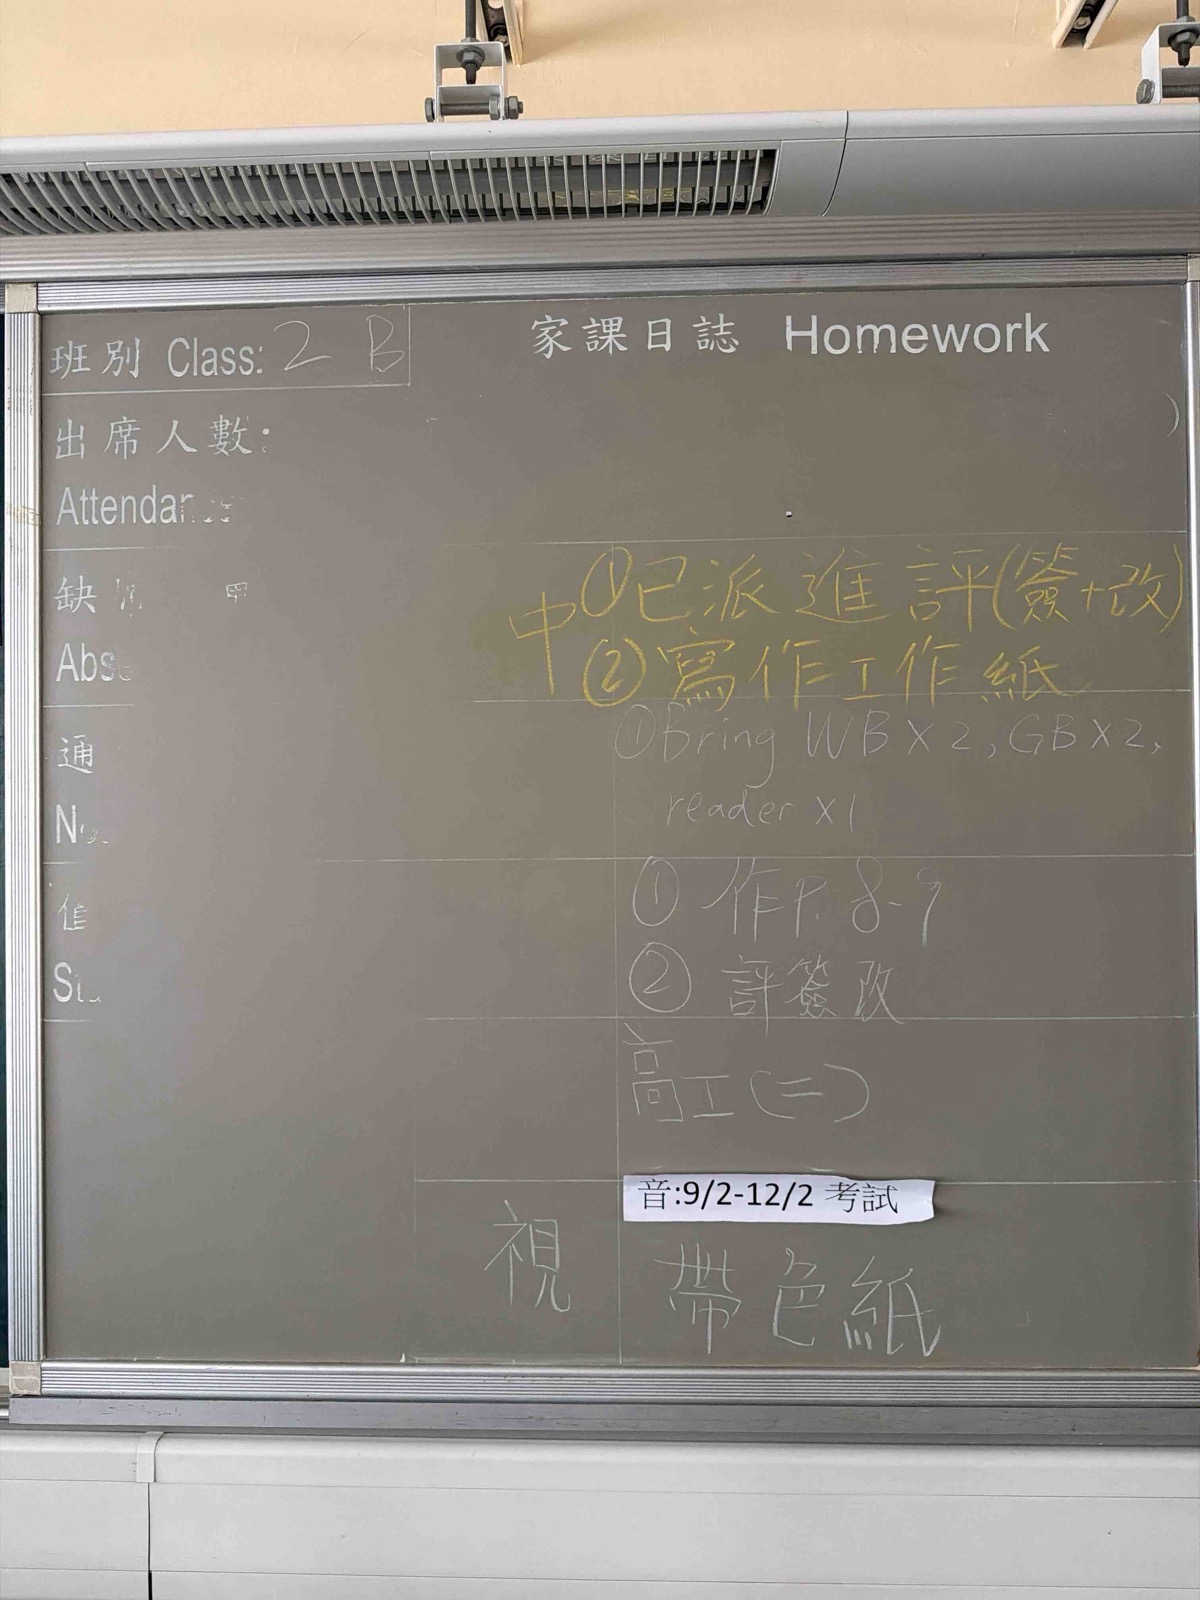 班別 Class: 2 B
家課日誌 Homework
出席人數:
Attendance
缺
通
中 ①已派進評(簽+改)
②寫作工作紙
①Bring WB X 2, GB X 2,
reader X 1
① 作P. 8-9
② 評簽改
高工(二)
音:9/2-12/2 考試
視 帶色紙